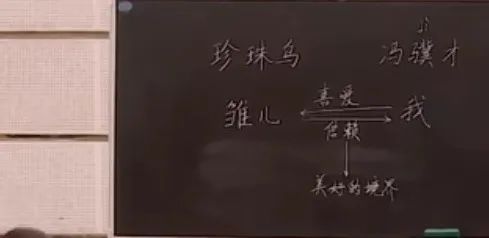 jì
珍珠鸟 冯骥才
喜爱
雏儿 我
信赖
美好的境界